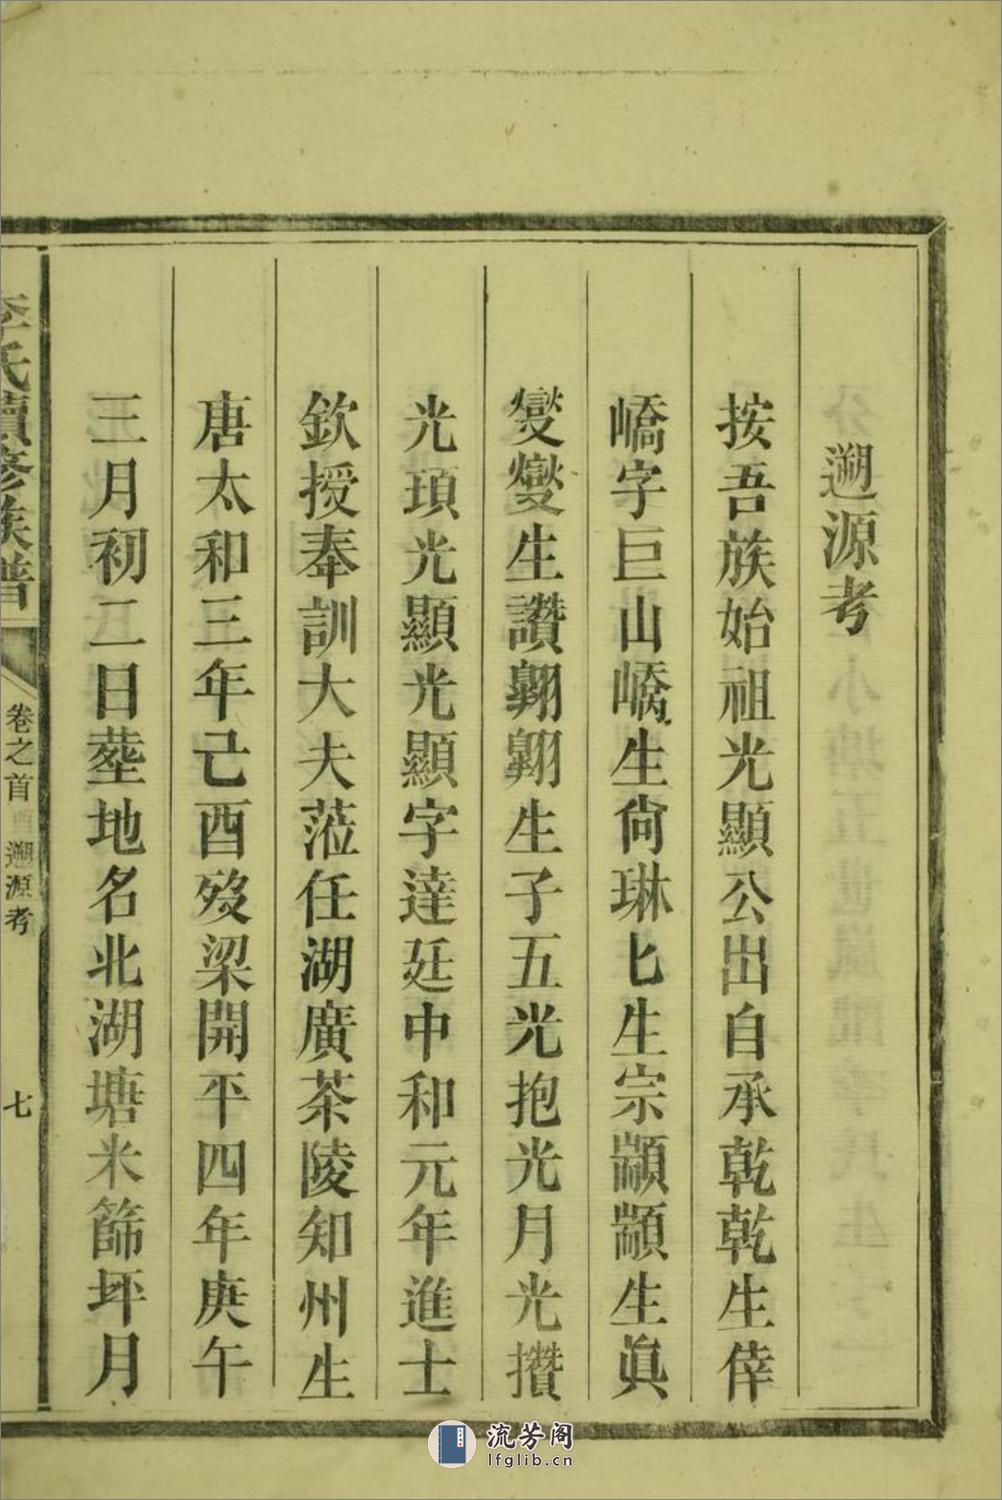 遡源考
按吾族始祖光顯公出自承乾乾生倖
嶠字巨山嶠生尙琳匕生宗顓顓生眞
燮燮生讚翺翺生子五光抱光月光攢
光頊光顯光顯字達廷中和元年進士
欽授奉訓大夫蒞任湖廣茶陵知州生
唐太和三年己酉歿梁開平四年庚午
三月初二日塟地名北湖塘米篩坪月
李氏續修族譜
卷之首
遡源考
七
流芳阁
lfglib.cn